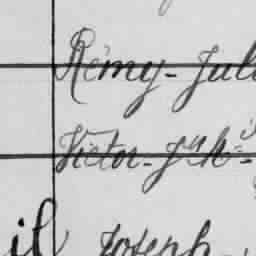 Rémy - Jul
Victor - Jph -
il Joseph -